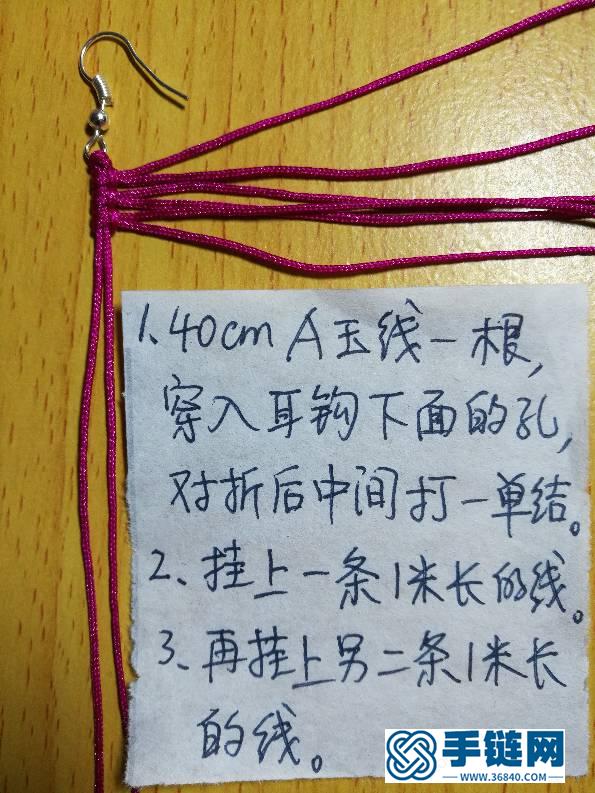 1、40cm A玉线一根,
穿入耳钩下面的孔,
对折后中间打一单结。
2、挂上一条1米长的线。
3、再挂上另二条1米长
的线。
手链网
WWW.36840.COM